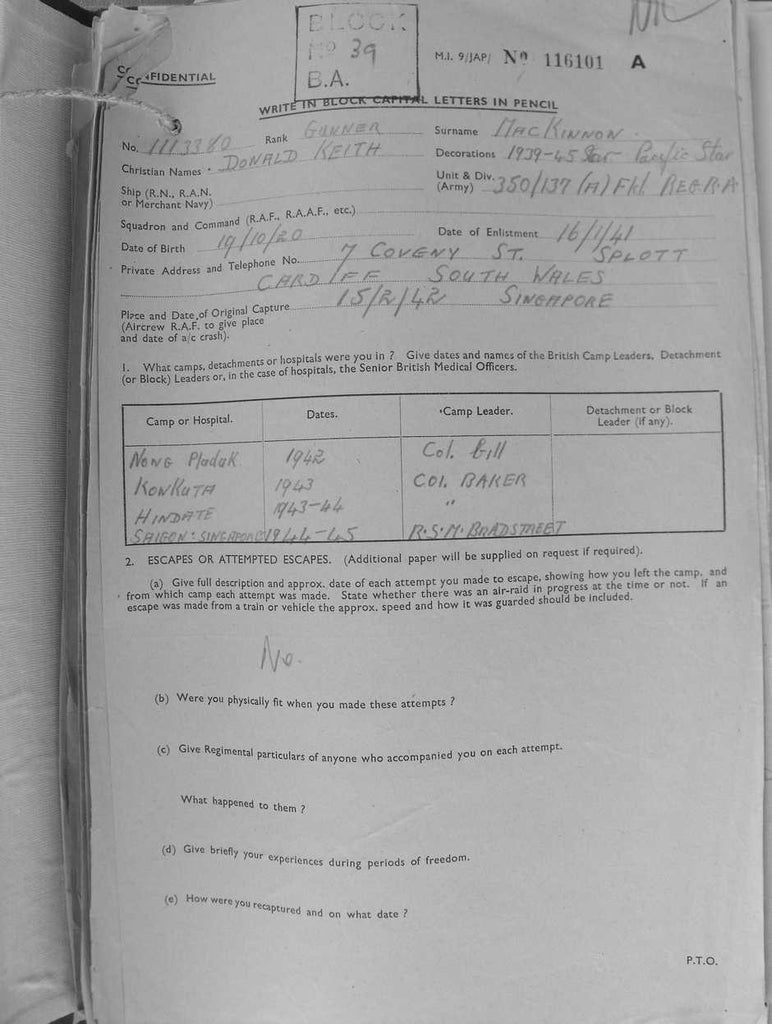 BLOCK
No 39
B.A.
M.I. 9/JAP/ No 116101 A
CONFIDENTIAL
WRITE IN BLOCK CAPITAL LETTERS IN PENCIL
No. 1113380 Rank GUNNER Surname MACKINNON
Christian Names DONALD KEITH Decorations 1939-45 Star Pacific Star
Ship (R.N., R.A.N. or Merchant Navy)
Unit & Div. (Army) 350/137 (A) Fld. REG. R.A
Squadron and Command (R.A.F., R.A.A.F., etc.)
Date of Birth 19/10/20 Date of Enlistment 16/1/41
Private Address and Telephone No. 7 COVENY ST. SPLOTT
CARDIFF SOUTH WALES
Place and Date of Original Capture 15/2/42 SINGAPORE
(Aircrew R.A.F. to give place
and date of a/c crash).
1. What camps, detachments or hospitals were you in ? Give dates and names of the British Camp Leaders, Detachment
(or Block) Leaders or, in the case of hospitals, the Senior British Medical Officers.
Camp or Hospital. Dates. Camp Leader. Detachment or Block
Leader (if any).
NONG Pladuk 1942 Col. Gill
KOWKUTA 1943 COL. BAKER
HINDATE 1943-44 "
SAIGON : SINGAPORE 1944-45 R.S.M. BRADSTREET
2. ESCAPES OR ATTEMPTED ESCAPES. (Additional paper will be supplied on request if required).
(a) Give full description and approx. date of each attempt you made to escape, showing how you left the camp, and
from which camp each attempt was made. State whether there was an air-raid in progress at the time or not. If an
escape was made from a train or vehicle the approx. speed and how it was guarded should be included.
No.
(b) Were you physically fit when you made these attempts ?
(c) Give Regimental particulars of anyone who accompanied you on each attempt.
What happened to them ?
(d) Give briefly your experiences during periods of freedom.
(e) How were you recaptured and on what date ?
P.T.O.